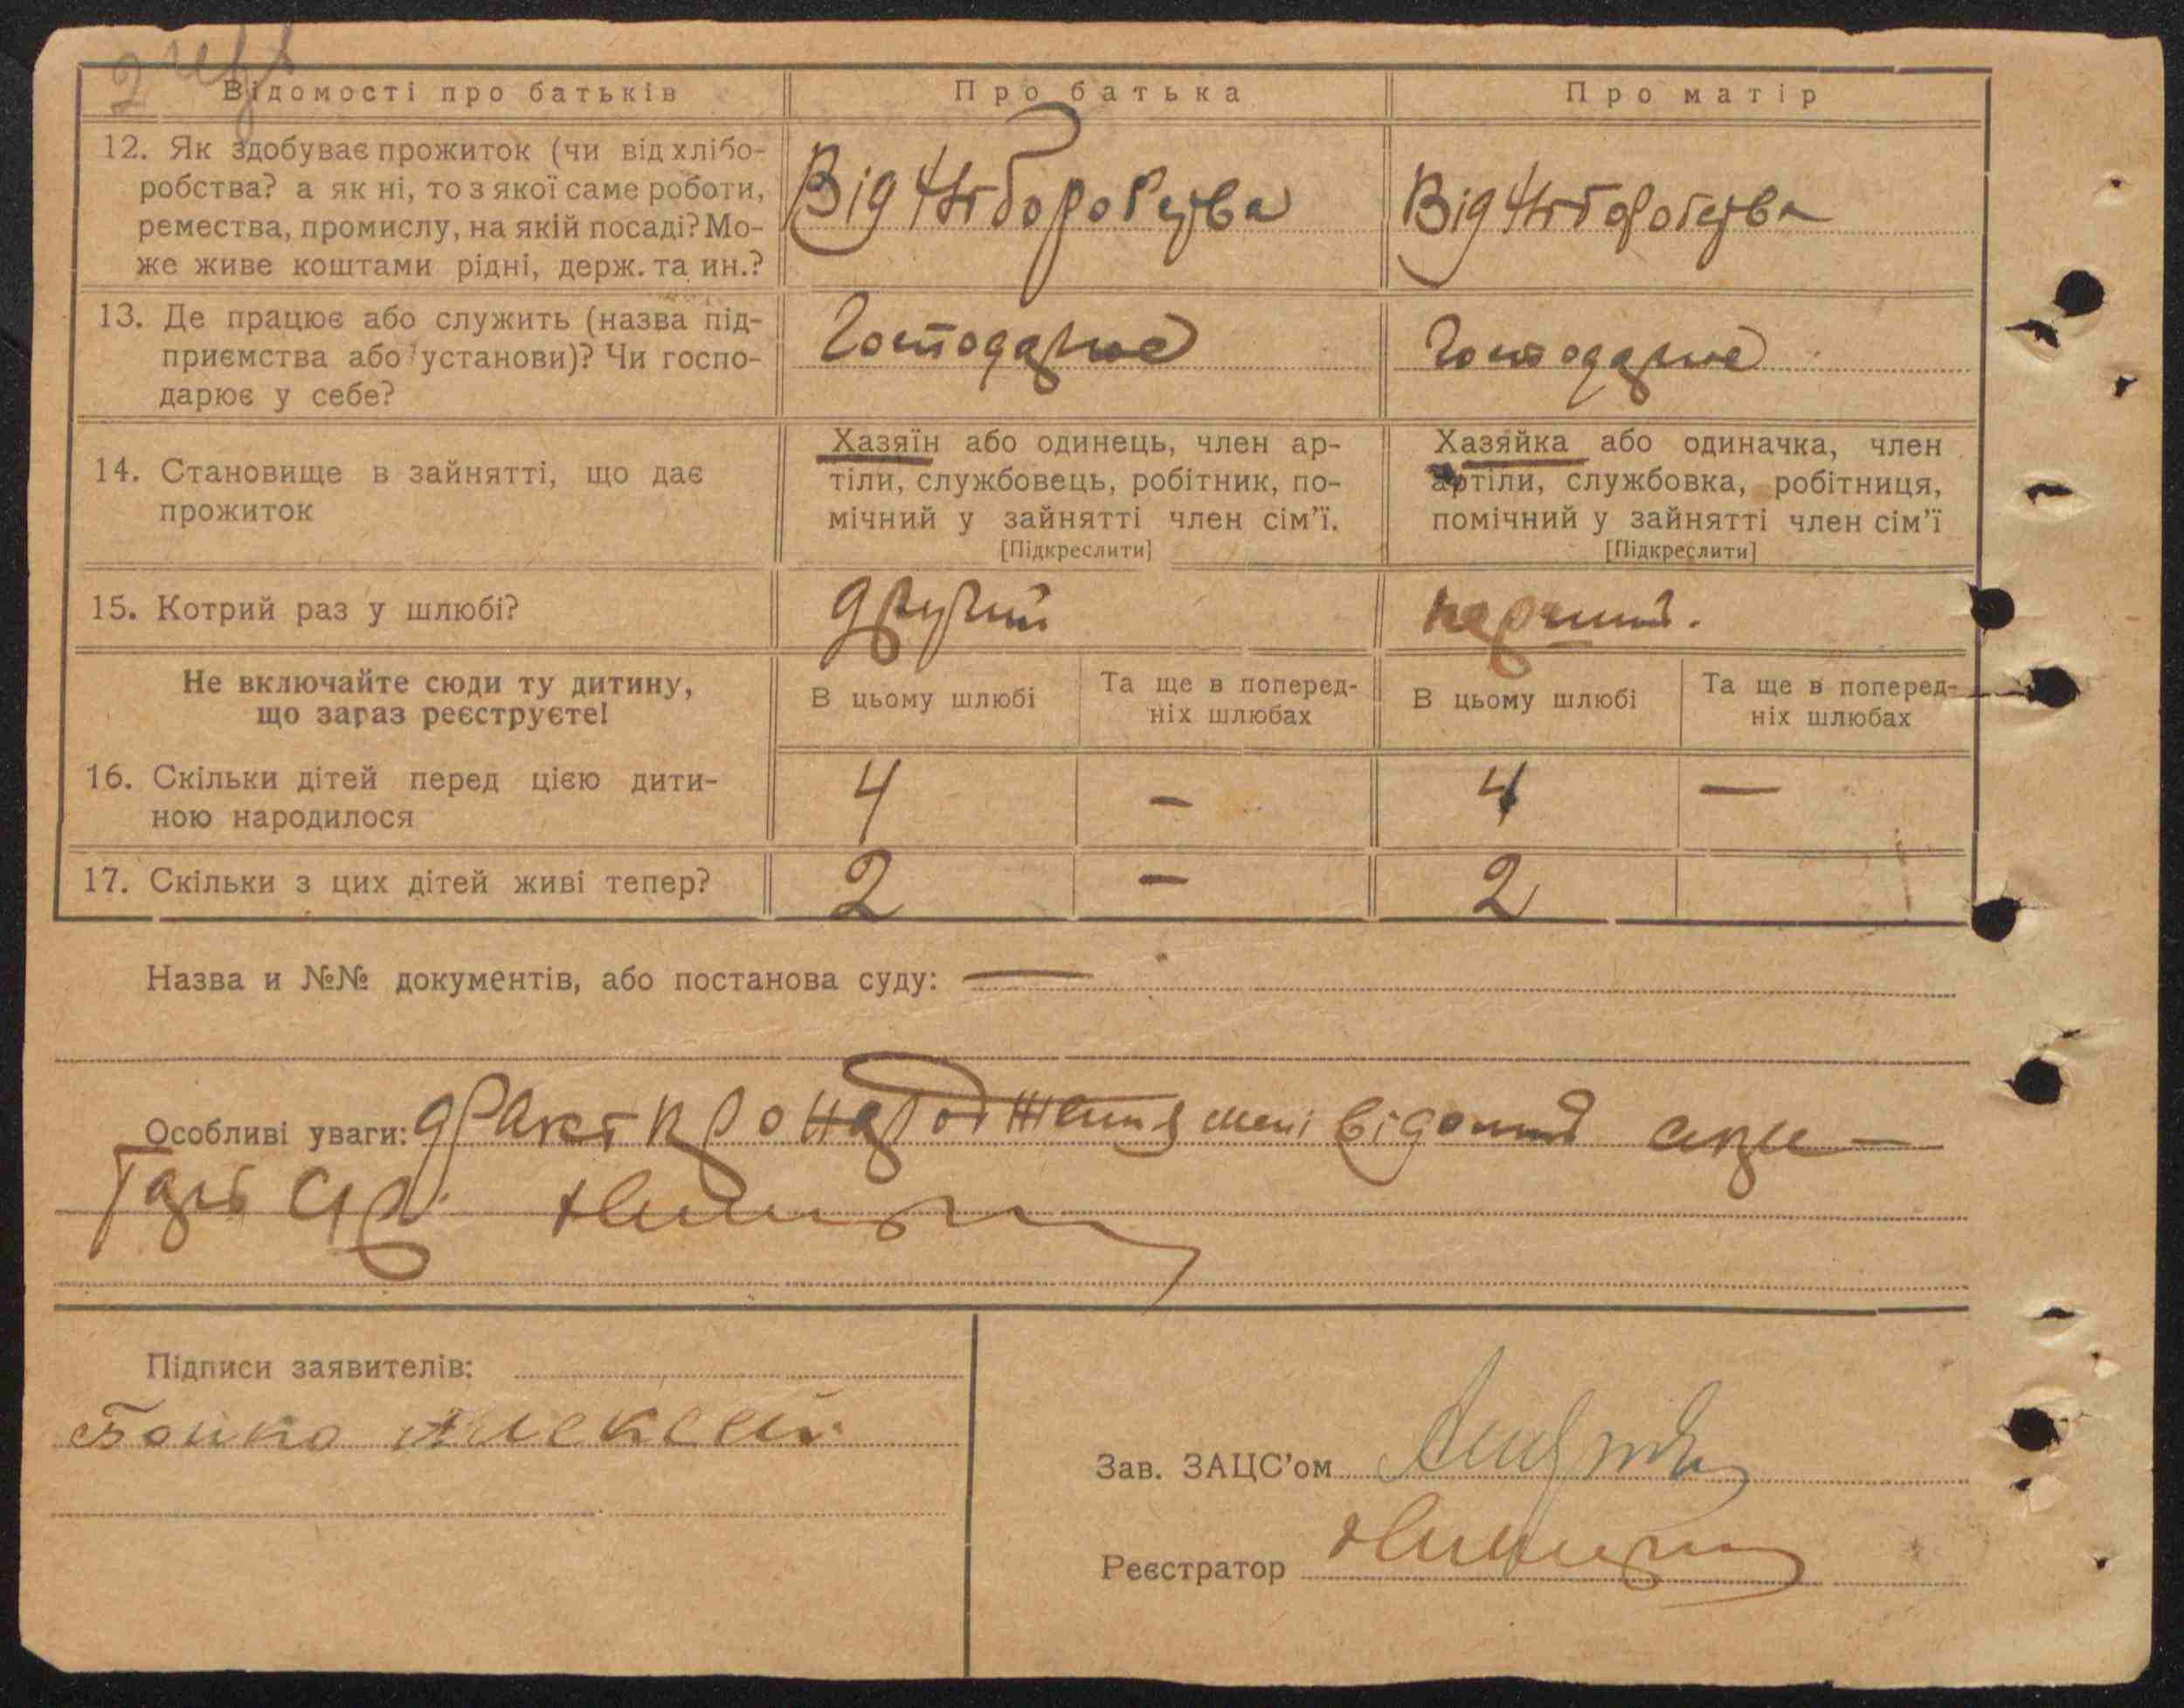 Відомості про батьків
Про батька
Про матір
12. Як здобуває прожиток (чи від хлібо-
робства? а як ні, то з якої саме роботи,
ремества, промислу, на якій посаді? Мо-
же живе коштами рідні, держ. та ин.?
Від
Від
13. Де працює або служить (назва під-
приємства або установи)? Чи госпо-
дарює у себе?
Господарює
Господарює
14. Становище в зайнятті, що дає
прожиток
Хазяїн або одинець, член ар-
тіли, службовець, робітник, по-
мічний у зайнятті член сім'ї.
[Підкреслити]
Хазяйка або одиначка, член
артіли, службовка, робітниця,
помічний у зайнятті член сім'ї
[Підкреслити]
15. Котрий раз у шлюбі?
другий
перший.
Не включайте сюди ту дитину,
що зараз реєструєте!
В цьому шлюбі
Та ще в поперед-
ніх шлюбах
В цьому шлюбі
Та ще в поперед-
ніх шлюбах
16. Скільки дітей перед цією дити-
ною народилося
4
–
4
—
17. Скільки з цих дітей живі тепер?
2
–
2
Назва и №№ документів, або постанова суду: —
Особливі уваги: факт про народження мені відомий
Підписи заявителів:
Бойко Алексей
Зав. ЗАЦС'ом
Реєстратор